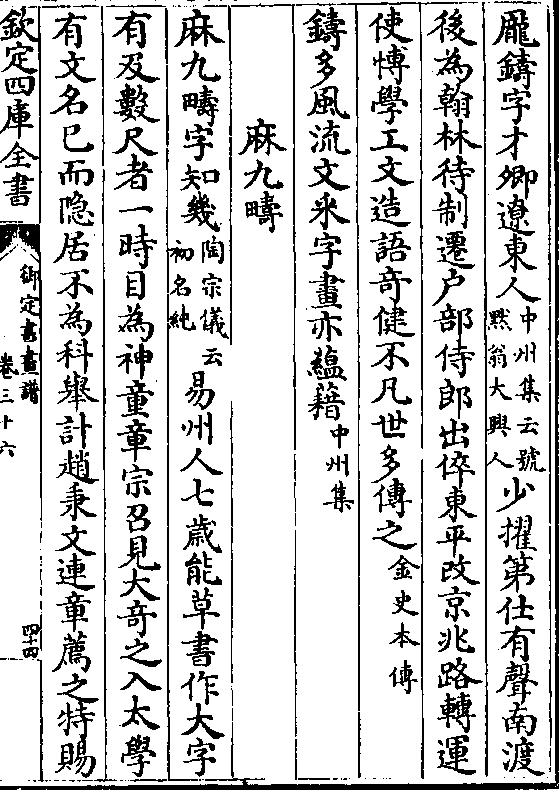 龎鑄字才卿遼東人中州集云號黙翁大興人少擢第仕有聲南渡
後為翰林待制遷户部侍郎出倅東平改京兆路轉運
使愽學工文造語奇健不凡世多傳之金史本傳
鑄多風流文采字畫亦蘊藉中州集
麻九疇
麻九疇字知幾陶宗儀云初名純易州人七歲能草書作大字
有及數尺者一時目為神童章宗召見大奇之入太學
有文名已而隐居不為科舉計趙秉文連章薦之特賜
欽定四庫全書
御定書畫譜
卷三十六
四十四